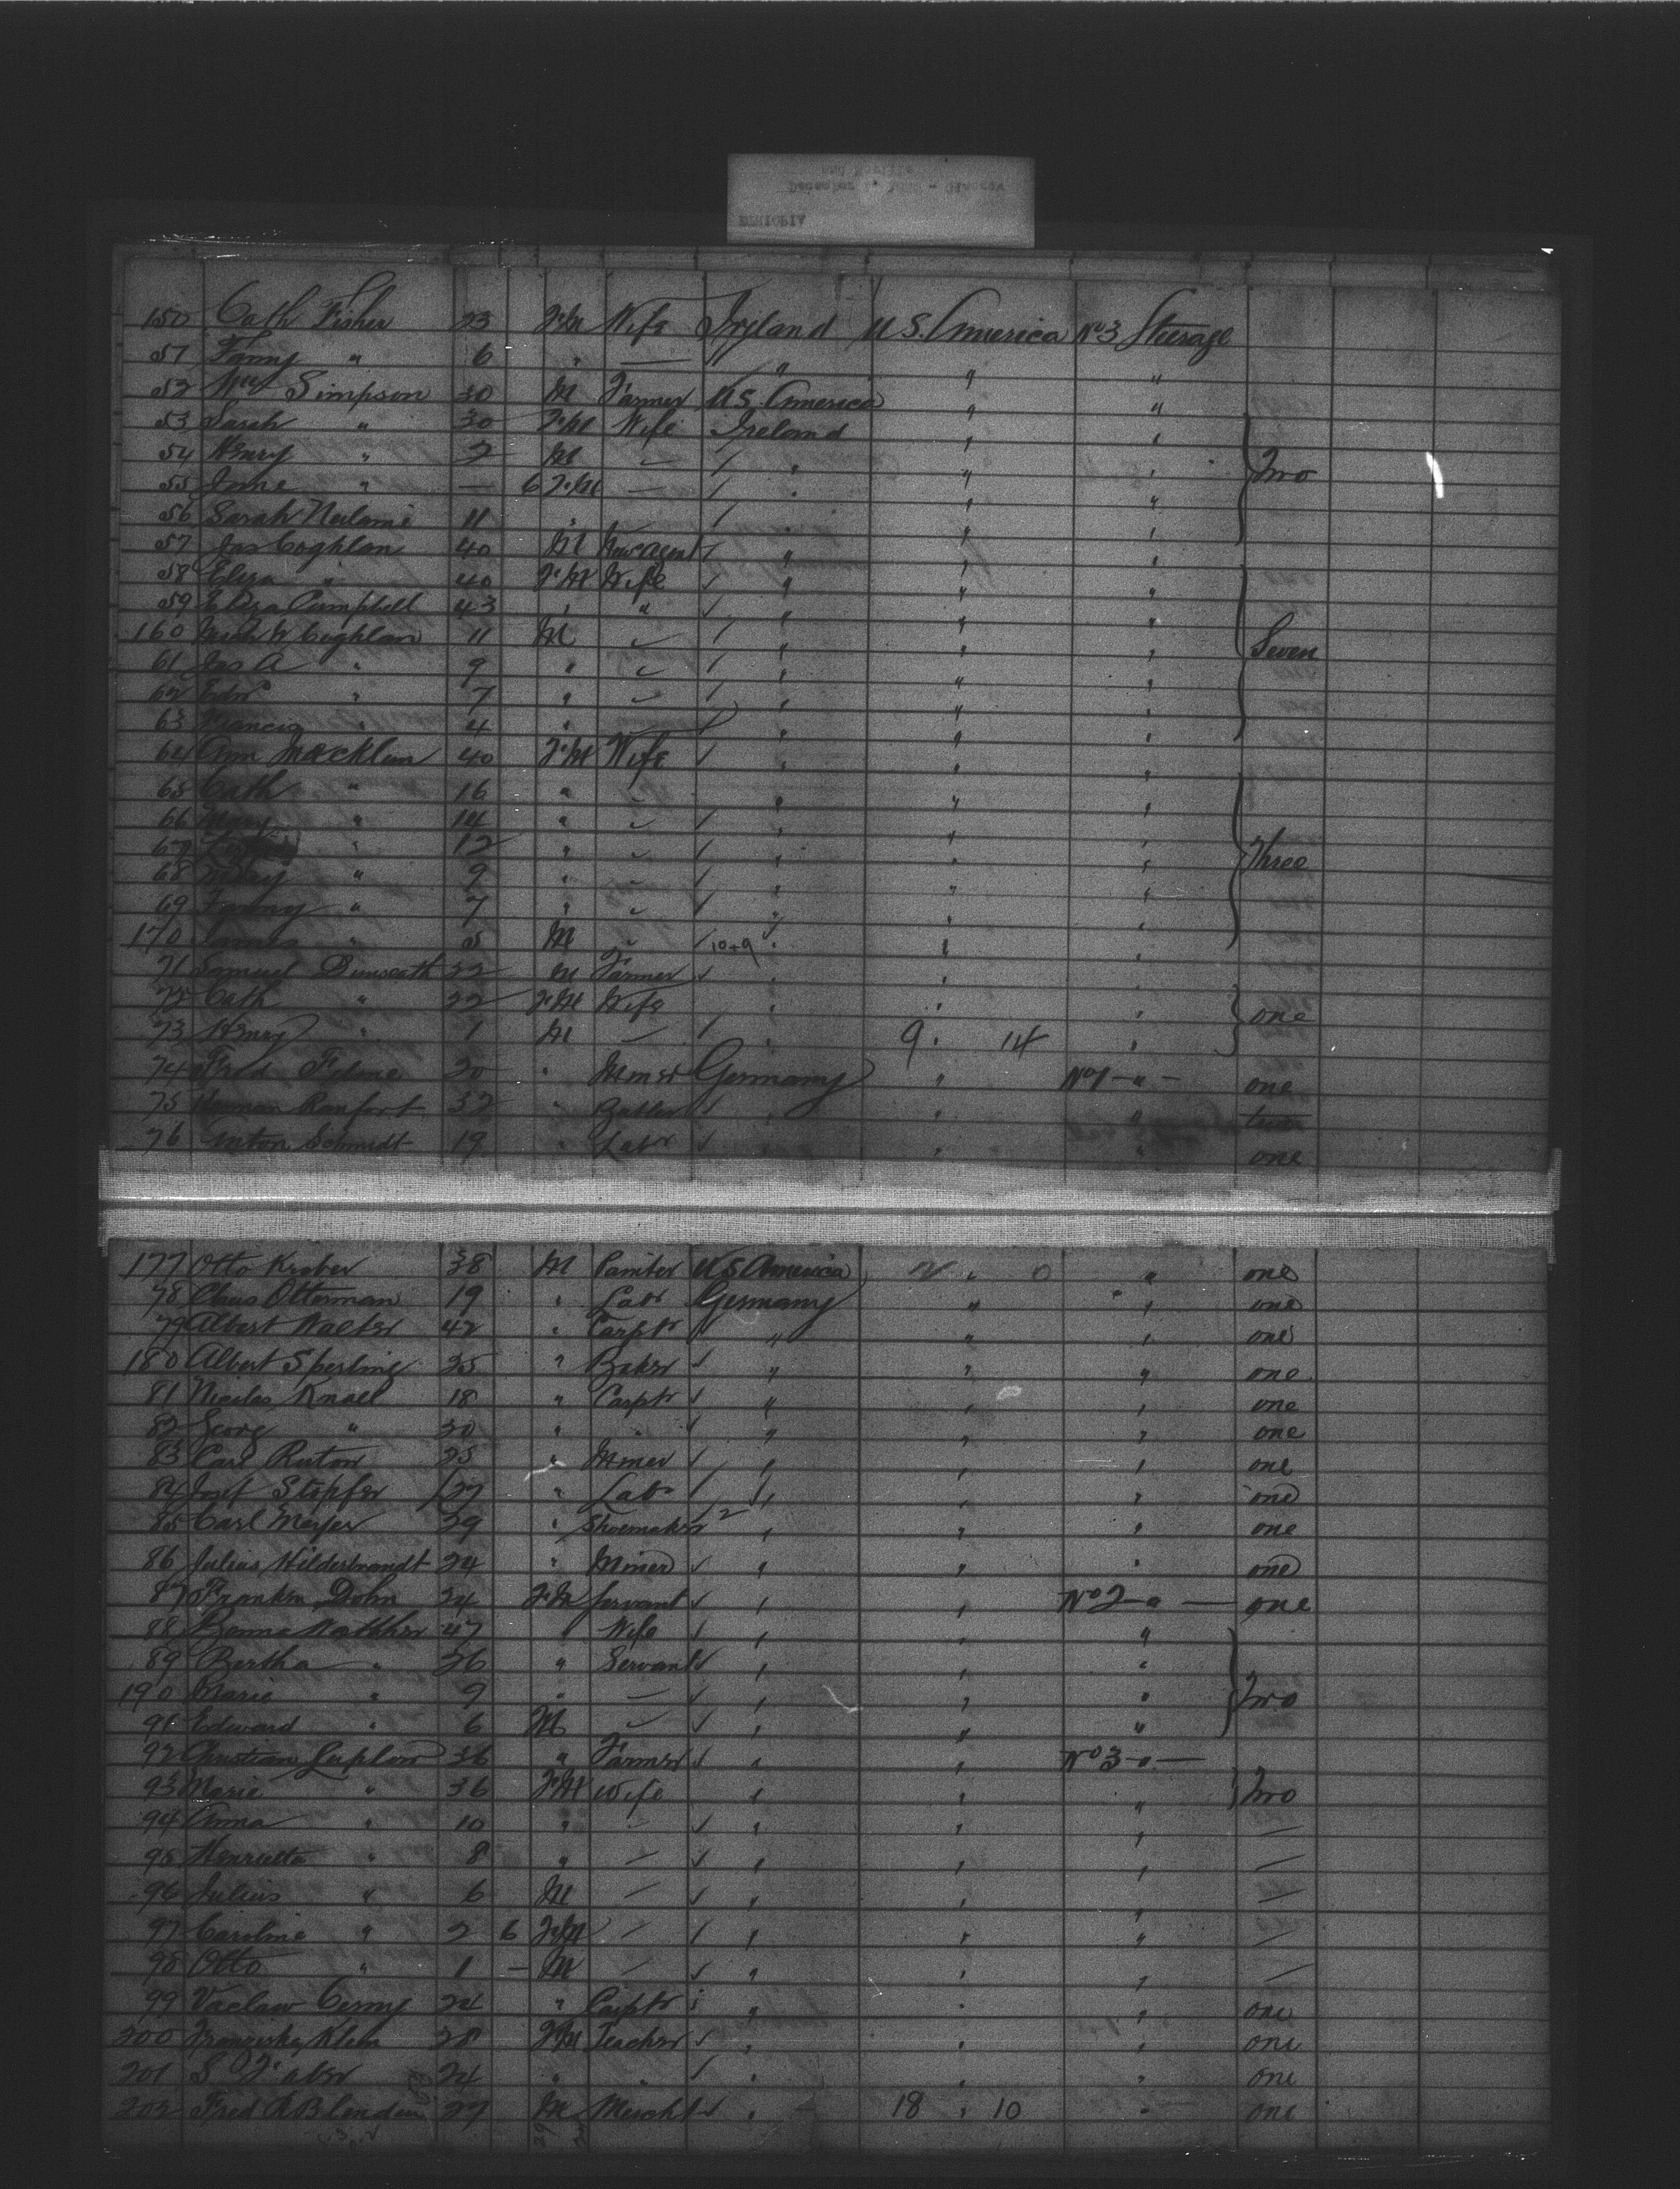 ETHIOPIA
150 Cath Fisher 23 F.M Wife Ireland U S. America No 3 Steerage
51 Fanny " 6 " — " " "
52 Wm Simpson 30 M Farmer U.S. America " "
53 Sarah " 30 F.M Wife Ireland " "
54 Henry " 2 M " " " Two
55 Jane " — 6 F.M — " " "
56 Sarah 11 " " " "
57 Jas Coghlan 40 M " " "
58 Eliza " 40 F.M Wife " " "
59 Eliza Campbell 43 " " " " "
160 Coghlan 11 M " " " Seven
61 Jas A " 9 " " " "
62 Edwd " 7 " " " "
63 Francis " 4 " " " "
64 Ann Macklin 40 F.M Wife " " "
65 Cath " 16 " " " "
66 Mary " 14 " " " "
67 " 12 " " " " Three
68 " 9 " " " "
69 Fanny " 7 " " " "
170 James " 5 M 10+9 " " "
71 Samuel Dunseath 22 M Farmer " " "
72 Cath " 22 F.M Wife " " " one
73 Henry " 1 M — " 9 " 14 "
74 Fred 20 " Miner Germany " No 1 — " — one
75 Herman Ranfort 32 " " " "
76 Anton Schmidt 19 " Labr " " " one
177 Otto Krober 38 M Painter U S America " 0 " one
78 Claus Otterman 19 " Labr Germany " " one
79 Albert Walter 42 " Carptr " " " one
180 Albert Sperling 25 " Baker " " " one
81 Nicolas Knoll 18 " Carptr " " " one
82 Georg " 20 " " " " " one
83 Carl 25 " Miner " " " one
84 Josef Stopfer 27 " Labr " " " one
85 Carl Meyer 29 " Shoemaker 2 " " " one
86 Julius Hilderbrandt 24 " Miner " " " one
87 Dohn 24 F.M Servant " " No 2 — " — one
88 47 " Wife " " "
89 Bertha " 26 " Servant " " "
190 Marie " 9 " — " " " Two
91 Edward " 6 M " " "
92 Christian Luplow 36 " Farmer " " No 3 — " —
93 Marie " 36 F.M Wife " " " Two
94 Anna " 10 " " " " —
95 Henrietta " 8 " — " " " —
96 Julius " 6 M — " " " —
97 Caroline " 2 6 F.M — " " " —
98 Otto " 1 — M — " " " —
99 Vaclaw Cerny 24 " Carptr " " " one
200 Franziska Klein 28 F.M Teacher " " " one
201 S Faber 24 " " " " " one
202 Fred R Blenden 27 M Mercht " 18 " 10 " one